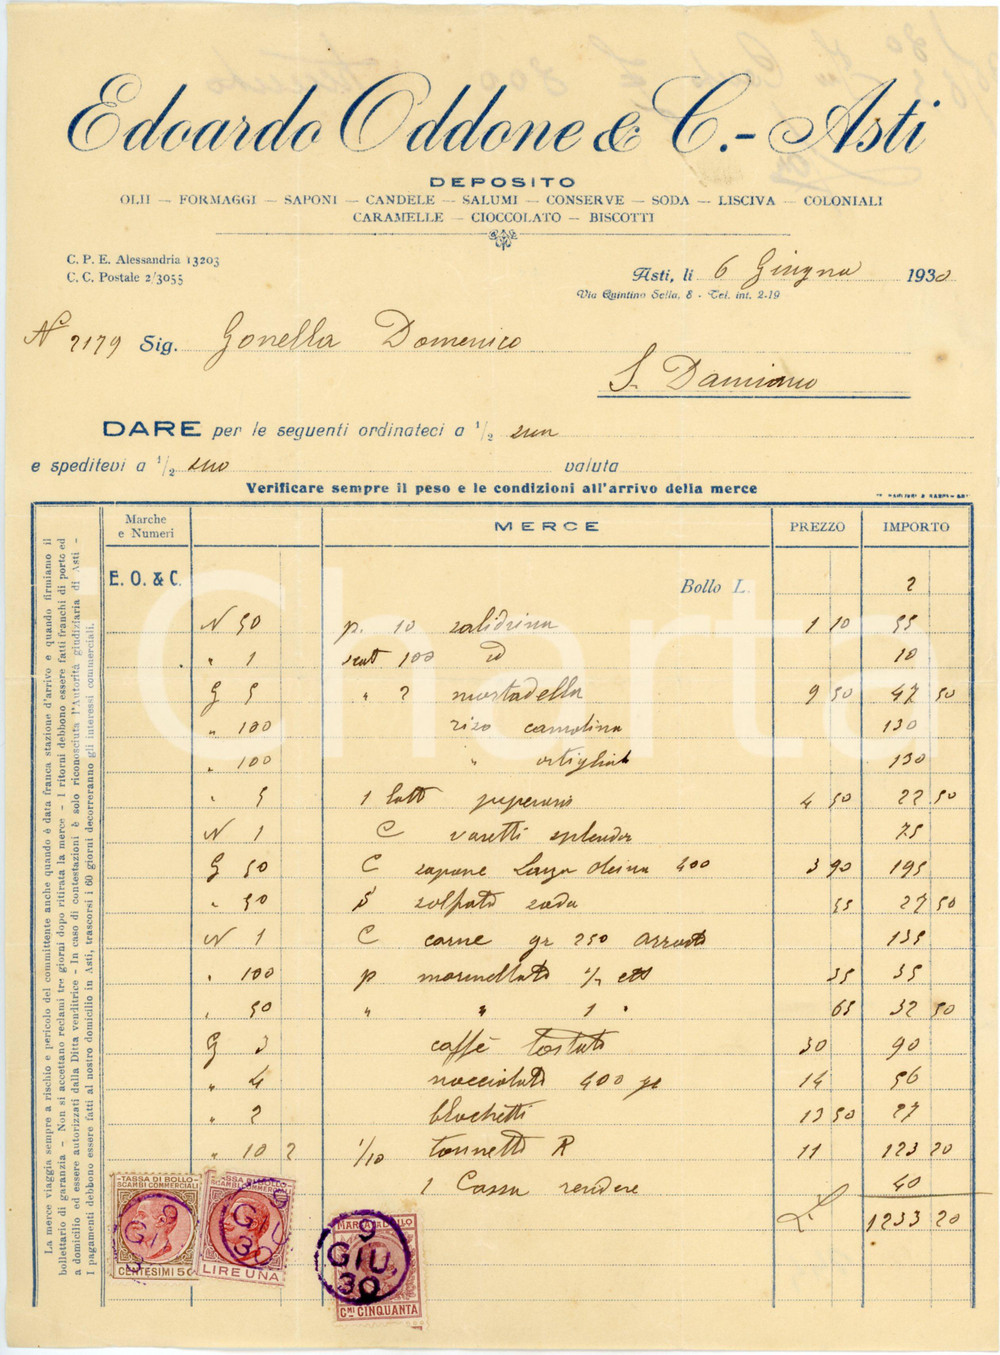 Edoardo Oddone & C. - Asti
DEPOSITO
OLII — FORMAGGI — SAPONI — CANDELE — SALUMI — CONSERVE — SODA — LISCIVA — COLONIALI
CARAMELLE — CIOCCOLATO — BISCOTTI
C. P. E. Alessandria 13203
C. C. Postale 2/3055
Asti, li 6 Giugno 1930
Via Quintino Sella, 8 - Tel. int. 2-19
N° 2179 Sig. Gonella Domenico
S. Damiano
DARE per le seguenti ordinateci a 1/2 suo
e speditevi a 1/2 suo valuta
Verificare sempre il peso e le condizioni all'arrivo della merce
Marche e Numeri MERCE PREZZO IMPORTO
E. O. & C. Bollo L. 2
N 50 p. 10 salidrina 1 10 55
" 1 scat 100 id 10
G 5 " 2 mortadella 9 50 47 50
" 100 riso camolino 130
" 100 " 130
" 5 1 latt peperoni 4 50 22 50
N 1 C vasetti splendor 75
G 50 C sapone 400 3 90 195
" 50 S solfato soda 55 27 50
N 1 C carne gr 250 arrosto 135
" 100 p marmellata 1/2 35 35
" 50 " " 1 " 65 32 50
G 3 caffè tostato 30 90
" 4 nocciolato 400 gr 14 56
" 2 13 50 27
" 10 2 1/10 tonnetto R 11 123 20
1 Cassa rendere 40
1233 20
La merce viaggia sempre a rischio e pericolo del committente anche quando è data franca stazione d'arrivo e quando firmiamo il
bollettario di garanzia — Non si accettano reclami tre giorni dopo ritirata la merce — I ritorni debbono essere fatti franchi di porto ed
a domicilio ed essere autorizzati dalla Ditta venditrice - In caso di contestazioni è solo riconosciuta l'Autorità giudiziaria di Asti —
I pagamenti debbono essere fatti al nostro domicilio in Asti, trascorsi i 60 giorni decorreranno gli interessi commerciali.
TASSA DI BOLLO
SCAMBI COMMERCIALI
CENTESIMI 50
9 GIU. 3
TASSA DI BOLLO
SCAMBI COMMERCIALI
LIRE UNA
9 GIU 30
MARCA DA BOLLO
9 GIU. 30
CMI CINQUANTA
Charta